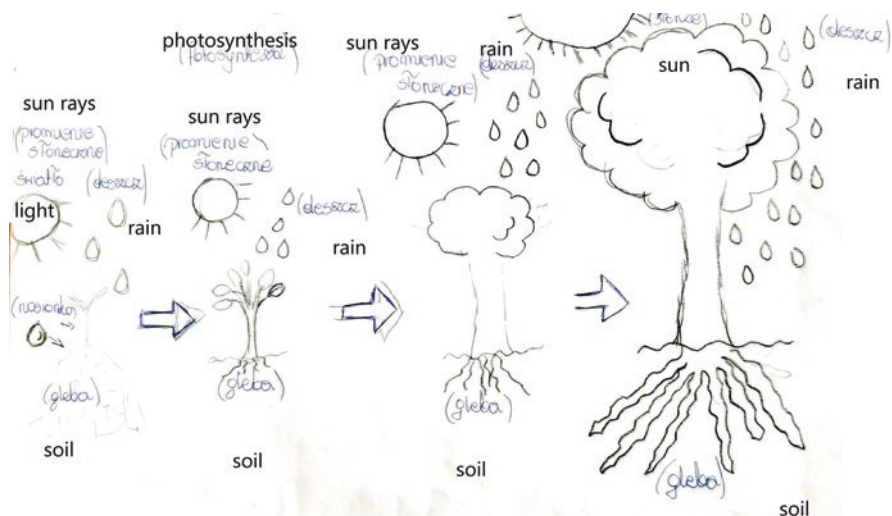 photosynthesis
(fotosynteza)
sun rays
(promienie
słoneczne
światło
light
(deszcz)
rain
(nasionko)
(gleba)
soil
sun rays
(promienie
słoneczne
(deszcz)
rain
(gleba)
soil
sun rays
(promienie
słoneczne)
rain
(deszcz)
(gleba)
soil
(słońce)
sun
(deszcz)
rain
(gleba)
soil